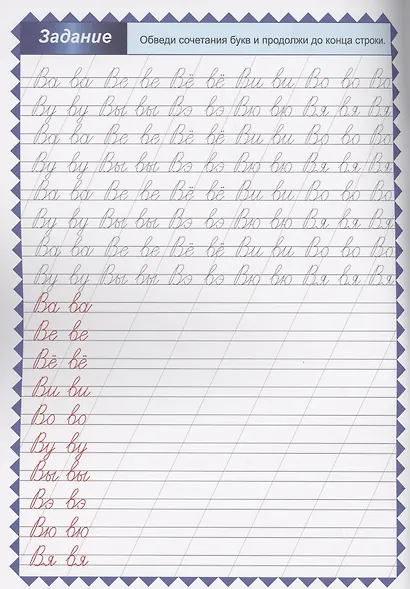 Задание
Обведи сочетания букв и продолжи до конца строки.
Ва ва Ве ве Вё вё Ви ви Во во Во
Ву ву Вы вы Вэ вэ Вю вю Вя вя Вя
Ва ва Ве ве Вё вё Ви ви Во во Во
Ву ву Вы вы Вэ вэ Вю вю Вя вя Вя
Ва ва Ве ве Вё вё Ви ви Во во Во
Ву ву Вы вы Вэ вэ Вю вю Вя вя Вя
Ва ва Ве ве Вё вё Ви ви Во во Во
Ву ву Вы вы Вэ вэ Вю вю Вя вя Вя
Ва ва
Ве ве
Вё вё
Ви ви
Во во
Ву ву
Вы вы
Вэ вэ
Вю вю
Вя вя